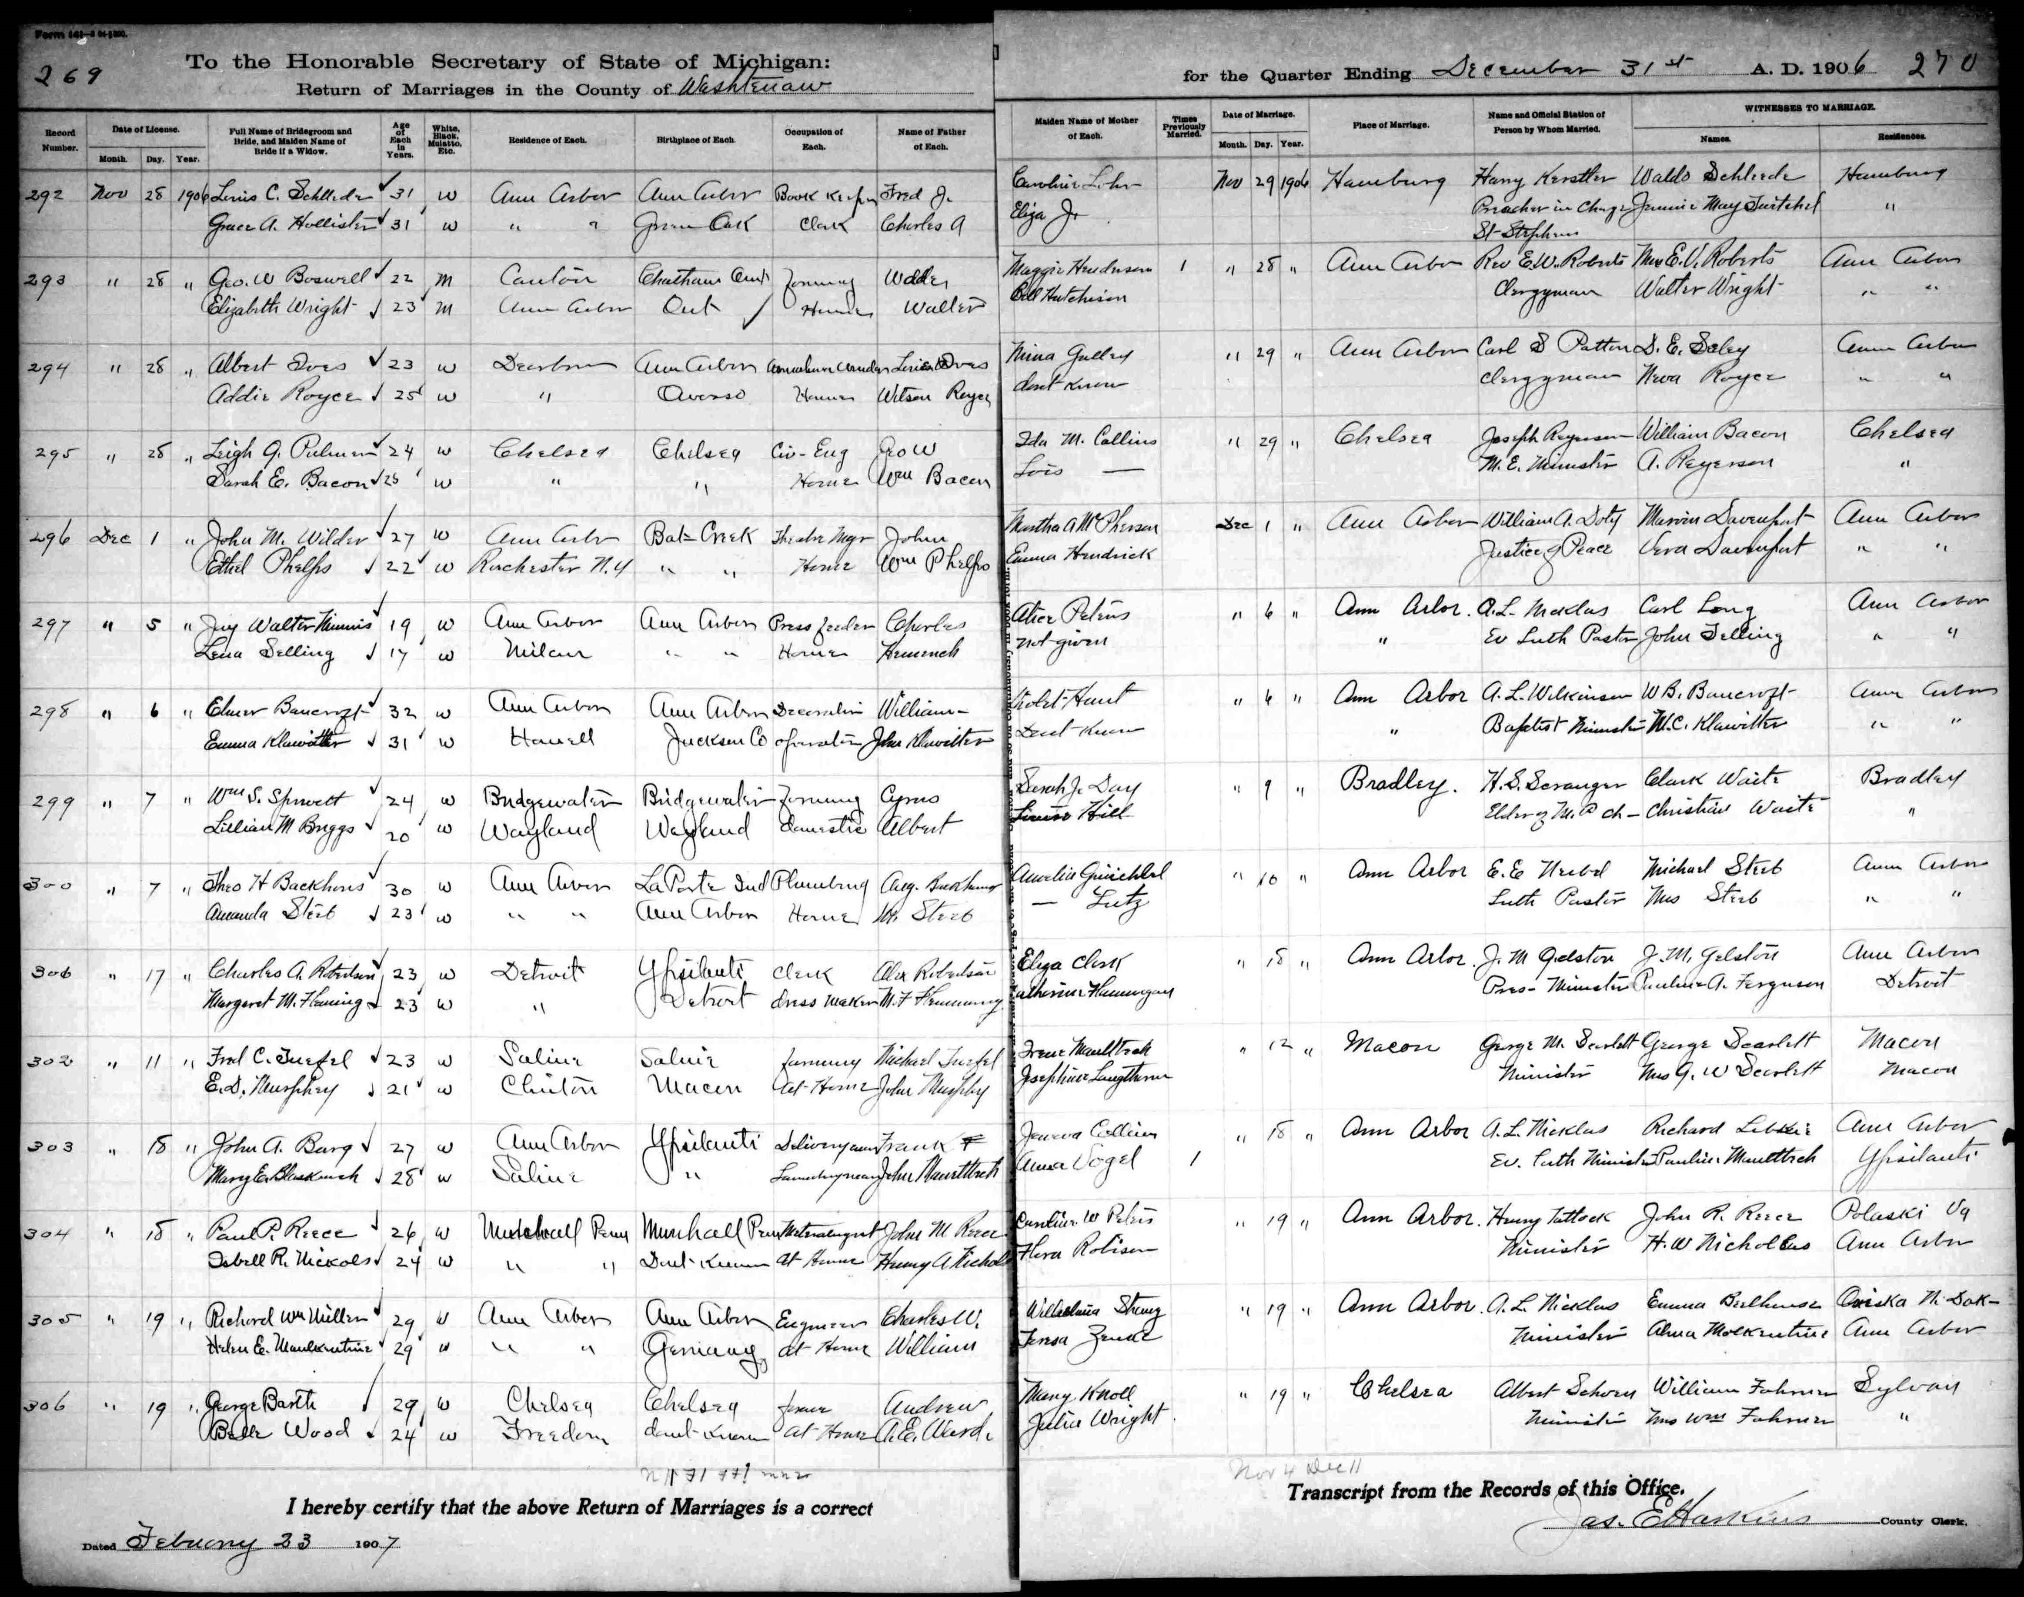 Form 141
269
To the Honorable Secretary of State of Michigan:
Return of Marriages in the County of Washtenaw
for the Quarter Ending December 31st A. D. 1906 270
Record Number.
Date of License.
Month. Day. Year.
Full Name of Bridegroom and Bride, and Maiden Name of Bride if a Widow.
Age of Each in Years.
White, Black, Mulatto, Etc.
Residence of Each.
Birthplace of Each.
Occupation of Each.
Name of Father of Each.
Maiden Name of Mother of Each.
Times Previously Married.
Date of Marriage.
Month. Day. Year.
Place of Marriage.
Name and Official Station of Person by Whom Married.
WITNESSES TO MARRIAGE.
Names.
Residences.
292 Nov 28 1906 Louis C. Schleede 31 W Ann Arbor Ann Arbor Book Keeper Fred J. Caroline Lohr Nov 29 1906 Hamburg Harry Kerstler Waldo Schleede Hamburg
Grace A. Hollister 31 W " " Green Oak Clerk Charles A Eliza J. Preacher in Charge Jennie May Twitchel "
St Stephens
293 " 28 " Geo. W Boswell 22 M Canton Chatham Ont farming Maggie Henderson 1 " 28 " Ann Arbor Rev E.W. Roberts Mrs E.V. Roberts Ann Arbor
Elizabeth Wright 23 M Ann Arbor Ont Home Walter Hutchison Clergyman Walter Wright " "
294 " 28 " Albert 23 W Dearborn Ann Arbor " 29 " Ann Arbor Carl S Patton D. E. Seley Ann Arbor
Addie Royce 25 W " Owosso Home Wilson Royce dont know Clergyman Neva Royce " "
295 " 28 " Leigh G. 24 W Chelsea Chelsea Civ-Eng Geo W Ida M. Collins " 29 " Chelsea Joseph Ryerson William Bacon Chelsea
Sarah E. Bacon 25 W " " Home Wm Bacon Lois — M. E. Minister A. Reyerson "
296 Dec 1 " John M. Wilder 27 W Ann Arbor Bat- Creek Theatre Mgr John Martha A McPherson Dec 1 " Ann Arbor William A. Doty Marvin Davenport Ann Arbor
Ethel Phelps 22 W Rochester N.Y " " Home Wm Phelps Emma Hendrick Justice of Peace Vera Davenport " "
297 " 5 " Jay Walter Nimms 19 W Ann Arbor Ann Arbor Press feeder Charles Alice Peters " 6 " Ann Arbor. A.L. Nicklas Carl Long Ann Arbor
Lena Selling 17 W Milan " " Home not given " Ev Luth Pastor John Selling " "
298 " 6 " Elmer Bancroft 32 W Ann Arbor Ann Arbor Decorator William Violet Hunt " 6 " Ann Arbor A. L. Wilkinson W B. Bancroft Ann Arbor
Emma Klawitter 31 W Howell Jackson Co operator John Klawitter Dont Know " Baptist Minister M. C. Klawitter " "
299 " 7 " Wm S. 24 W Bridgewater Bridgewater farming Cyrus Sarah J. Day " 9 " Bradley. H. S. Scranger Clark Waite Bradley
Lillian M Briggs 20 W Wayland Wayland domestic Albert Louise Hill Elder of M. P ch- Christian Waite "
300 " 7 " Theo H Backhous 30 W Ann Arbor LaPorte Ind Plumbing Aug. " 10 " Ann Arbor Michael Steeb Ann Arbor
Amanda Steeb 23 W " " Ann Arbor Home Steeb — Lutz Luth Pastor Mrs Steeb " "
306 " 17 " Charles A. Robertson 23 W Detroit Ypsilanti Clerk Alex Robertson Eliza Clark " 18 " Ann Arbor. J. M Gelston J. M. Gelston Ann Arbor
Margaret M. Fleming 23 W " Detroit dress maker M. F Flemming Pres- Minister Pauline A. Ferguson Detroit
302 " 11 " Fred C. Tuefel 23 W Saline Saline farming Michael Tuefel " 12 " Macon George M. Scarlett George Scarlett Macon
E. D. Murphey 21 W Clinton Macon At Home John Murphy Josephine Minister Mrs G. W Scarlett Macon
303 " 18 " John A. Barg 27 W Ann Arbor Ypsilanti Frank " 18 " Ann Arbor A. L. Nicklas Richard Ann Arbor
Mary E. 28 W Saline " John Anna Vogel 1 Ev. Luth Minister Pauline Ypsilanti
304 " 18 " Paul P. Reece 26 W Munhall Penn John M Reece Caroline W Peters " 19 " Ann Arbor. Henry Tatlock John R. Reece Polaski Va
R. Nickols 24 W " " Dont Know at Home Henry A Nichols Flora Robison Minister H. W Nicholas Ann Arbor
305 " 19 " Richard Wm Miller 29 W Ann Arbor Ann Arbor Engineer Charles W. " 19 " Ann Arbor. A. L. Nicklas Emma N. Dak-
Helen E. 29 W " " Germany at Home William Minister Alma Ann Arbor
306 " 19 " George Barth 29 W Chelsea Chelsea Andrew Mary Knoll " 19 " Chelsea Albert Schoen William Fahrner Sylvan
Belle Wood 24 W Freedom dont Know At Home A.E. Ward. Julia Wright. Minister Mrs Wm Fahrner "
Nov 4 Dec 11
I hereby certify that the above Return of Marriages is a correct Transcript from the Records of this Office.
Dated Febuary 23 1907
Jas. E Harkins County Clerk.